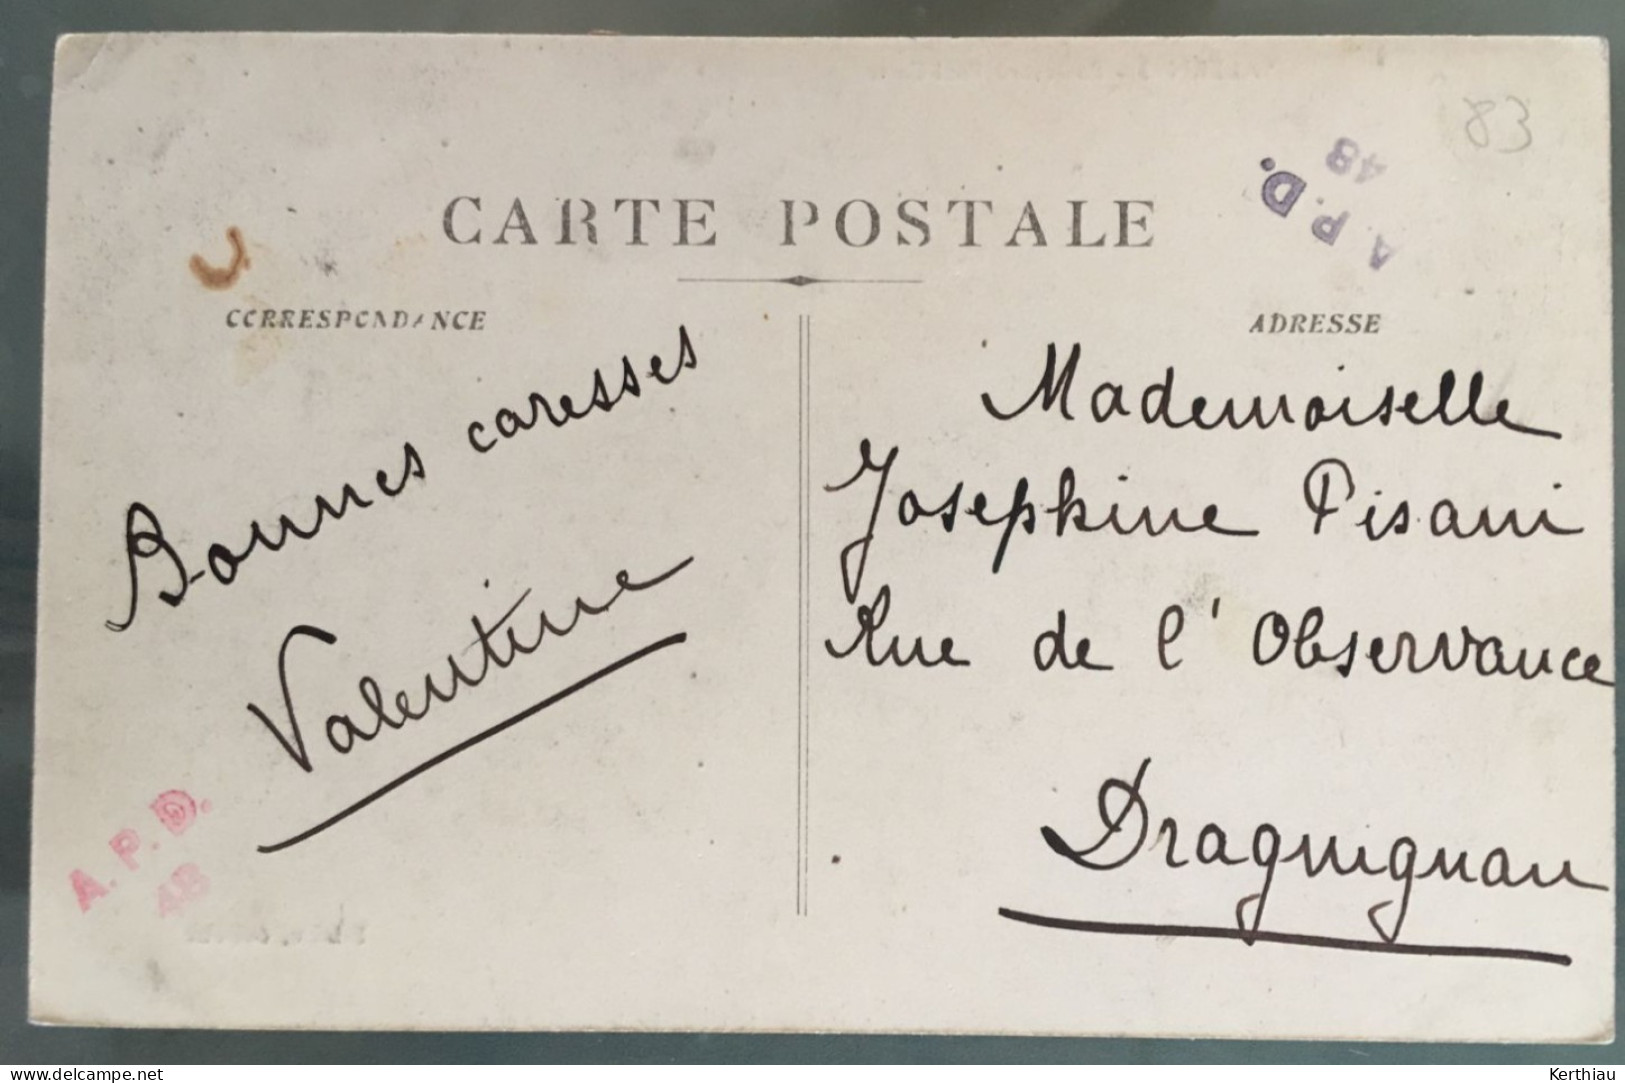 83
A. P. D.
48
CARTE POSTALE
CORRESPONDANCE
ADRESSE
Bonnes caresses
Valentine
A. P. D.
48
Mademoiselle
Josephine Pisani
Rue de l'Observance
Draguignan
www.delcampe.net
Kerthiau